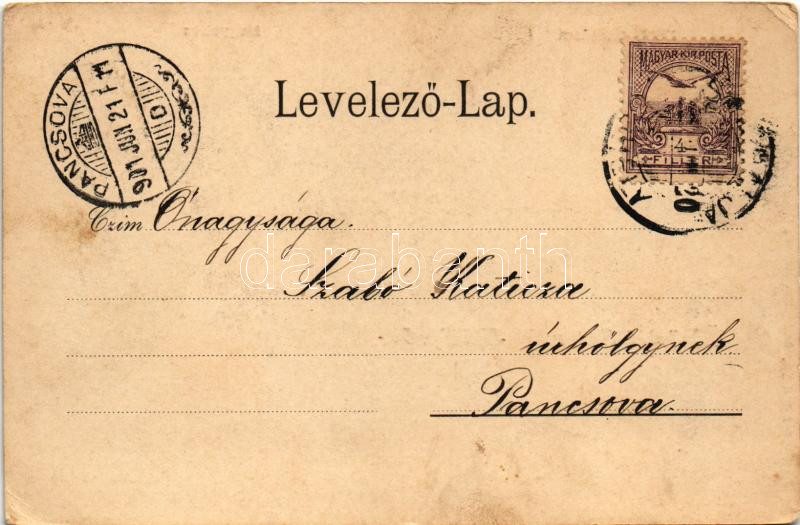 PANCSOVA
901 JUN 21 F 11
MAGYAR KIR. POSTA
FILLÉR
Levelező-Lap.
Czim Őnagysága.
darabanth
Szabó Katicza
úrhölgynek
Pancsova.